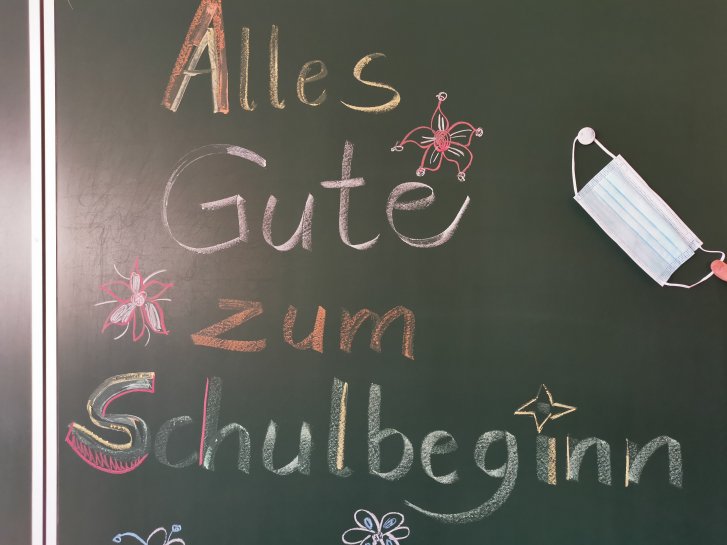 Alles
Gute
zum
Schulbeginn